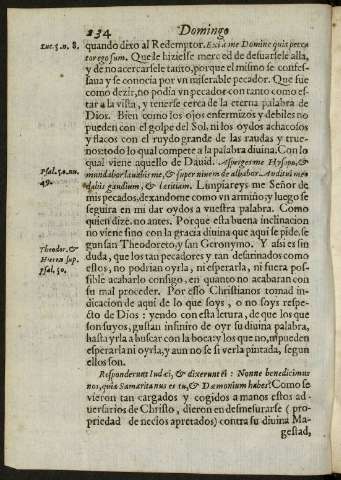 234 Domingo
Luc. 5. n. 8. quando dixo al Redemptor. Exi a me Domine quia pecca
tor ego sum. Que le hiziesse merced de desuarsele alla,
y de no acercarsele tanto, porque el mismo se confes-
saua y se conocia por vn miserable pecador. Que fue
como dezir, no podia vn pecador con tanto como es-
tar a la vista, y tenerse cerca de la eterna palabra de
Dios. Bien como los ojos enfermizos y debiles no
pueden con el golpe del Sol, ni los oydos achacosos
y flacos con el ruydo grande de las raudas y true-
nos: todo lo qual compete a la palabra diuina. Con lo
qual viene aquello de Dauid. Asperges me Hysopo, &
Psal. 50. nu. mundabor, lauabis me, & super niuem de albabor. Auditui meo
49. dabis gaudium, & lætitiam. Limpiareys me Señor de
mis pecados, dexandome como vn armiño; y luego se
seguira en mi dar oydos a vuestra palabra. Como
quien dize, no antes. Porque esta buena inclinacion
no viene sino con la gracia diuina que aqui se pide, se
gun san Theodoreto, y san Geronymo. Y assi es sin
Theodor. & duda, que los tan pecadores y tan desatinados como
Hieron sup. estos, no podrian oyrla, ni esperarla, ni fuera pos-
psal. 50. sible acabarlo consigo, en quanto no acabaran con
su mal proceder. Por esso Christianos tomad in-
dicacion de aqui de lo que soys, o no soys respe-
cto de Dios: yendo con esta letura, de que los que
son suyos, gustan infiniro de oyr su diuina palabra,
hasta yrla a buscar con la boca: y los que no, ni pueden
esperarla ni oyrla, y aun no se si verla pintada, segun
ellos son.
Responderunt Iudæi, & dixerunt ei: Nonne benedicimus
nos, quia Samaritanus es tu, & Dæmonium habes? Como se
vieron tan cargados y cogidos a manos estos ad-
uersarios de Christo, dieron en desmesurarse (pro-
priedad de necios apretados) contra su diuina Ma-
gestad,